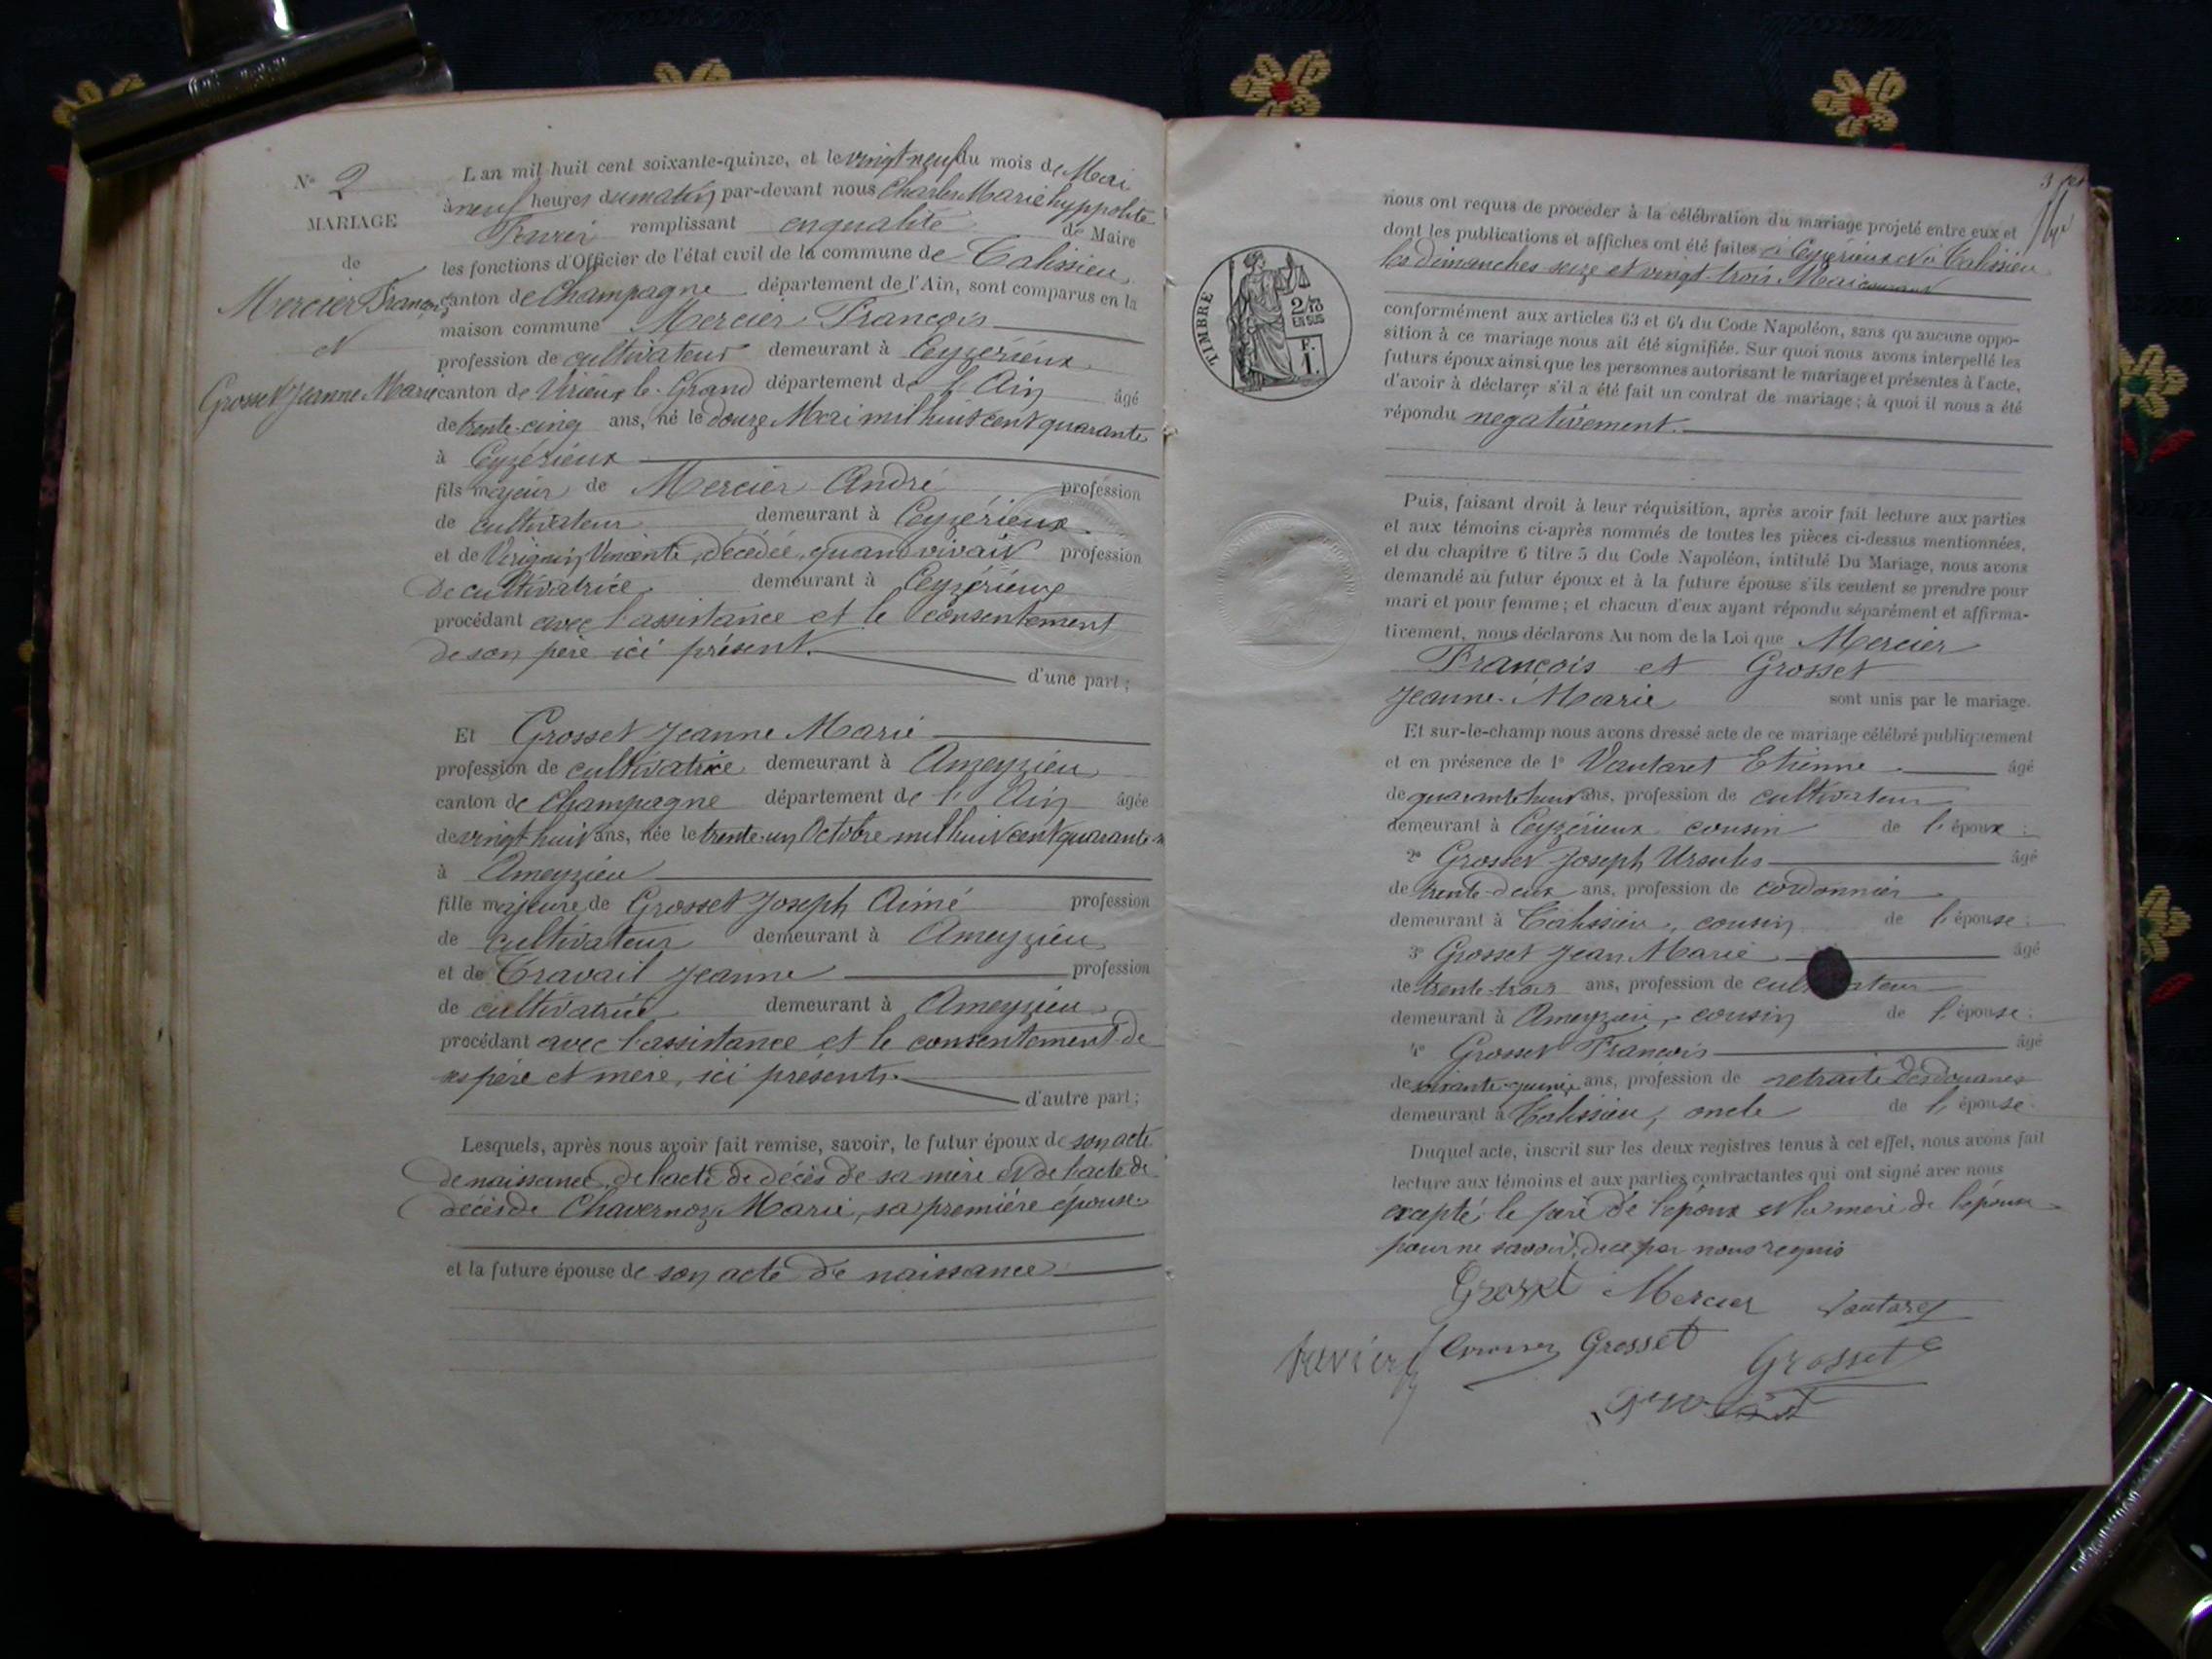 N° 2
MARIAGE
de
Mercier François
et
Grosset Jeanne Marie
L'an mil huit cent soixante-quinze, et le vingt neuf du mois de Mai
à neuf heures du matin par-devant nous Charles Marie hyppolite
remplissant en qualité de Maire
les fonctions d'Officier de l'état civil de la commune de Talissieu
canton de Champagne département de l'Ain, sont comparus en la
maison commune Mercier François
profession de cultivateur demeurant à Ceyzérieux
canton de Virieux le Grand département de l'Ain âgé
de trente-cinq ans, né le douze Mai mil huit cent quarante
à Ceyzérieux
fils majeur de Mercier André profession
de cultivateur demeurant à Ceyzérieux
et de Vincente, décédée, quand vivait profession
de cultivatrice demeurant à Ceyzérieux
procédant avec l'assistance et le consentement
de son père ici présent.
d'une part;
Et Grosset Jeanne Marie
profession de cultivatrice demeurant à Ameyzieu
canton de Champagne département de l'Ain âgée
de vingt-huit ans, née le trente-un Octobre mil huit cent quarante-
à Ameyzieu
fille majeure de Grosset Joseph Aimé profession
de cultivateur demeurant à Ameyzieu
et de Travail Jeanne profession
de cultivatrice demeurant à Ameyzieu
procédant avec l'assistance et le consentement de
ses père et mère, ici présents.
d'autre part;
Lesquels, après nous avoir fait remise, savoir, le futur époux de son acte
de naissance, de l'acte de décès de sa mère et de l'acte de
décès de Chavernoz Marie, sa première épouse.
et la future épouse de son acte de naissance
3
nous ont requis de procéder à la célébration du mariage projeté entre eux et
dont les publications et affiches ont été faites à Ceyzérieux et à Talissieu
les dimanches seize et vingt trois Mai courant
conformément aux articles 63 et 64 du Code Napoléon, sans qu'aucune oppo-
sition à ce mariage nous ait été signifiée. Sur quoi nous avons interpellé les
futurs époux ainsi que les personnes autorisant le mariage et présentes à l'acte,
d'avoir à déclarer s'il a été fait un contrat de mariage; à quoi il nous a été
répondu negativement.
TIMBRE
2/10
EN SUS
F.
1.
Puis, faisant droit à leur réquisition, après avoir fait lecture aux parties
et aux témoins ci-après nommés de toutes les pièces ci-dessus mentionnées,
et du chapitre 6 titre 5 du Code Napoléon, intitulé Du Mariage, nous avons
demandé au futur époux et à la future épouse s'ils veulent se prendre pour
mari et pour femme; et chacun d'eux ayant répondu séparément et affirma-
tivement, nous déclarons Au nom de la Loi que Mercier
François et Grosset
Jeanne-Marie sont unis par le mariage.
Et sur-le-champ nous avons dressé acte de ce mariage célébré publiquement
et en présence de 1° Vautaret Etienne âgé
de quarante huit ans, profession de cultivateur
demeurant à Ceyzérieux cousin de l'époux;
2° Grosset Joseph Ursules âgé
de trente-deux ans, profession de cordonnier
demeurant à Talissieu, cousin de l'épouse;
3° Grosset Jean Marie âgé
de trente-trois ans, profession de cultivateur
demeurant à Ameyzieu, cousin de l'épouse;
4° Grosset François âgé
de soixante-quinze ans, profession de retraité des douanes
demeurant à Talissieu, oncle de l'épouse.
Duquel acte, inscrit sur les deux registres tenus à cet effet, nous avons fait
lecture aux témoins et aux parties contractantes qui ont signé avec nous
excepté le père de l'époux et la mère de l'épouse
pour ne savoir, de ce par nous requis
Grosset Mercier Vautaret
Grosset
Grosset